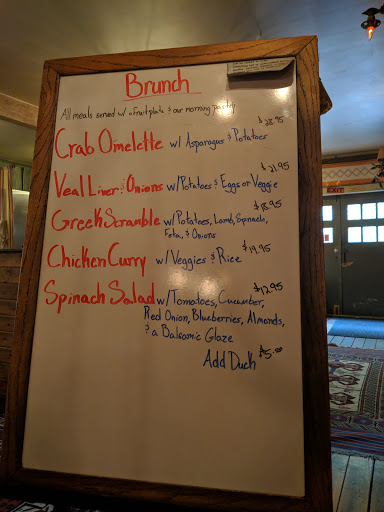 Brunch
All meals served w/ a fruit plate & our morning pastry
$28.95
Crab Omelette w/ Asparagus & Potatoes
$21.95
Veal Liver & Onions w/ Potatoes & Eggs or Veggie
$18.95
Greek Scramble w/ Potatoes, Lamb, Spinach,
Feta, & Onions
$19.95
Chicken Curry w/ Veggies & Rice
$12.95
Spinach Salad w/ Tomatoes, Cucumber,
Red Onion, Blueberries, Almonds,
& a Balsamic Glaze
Add Duck $5.00